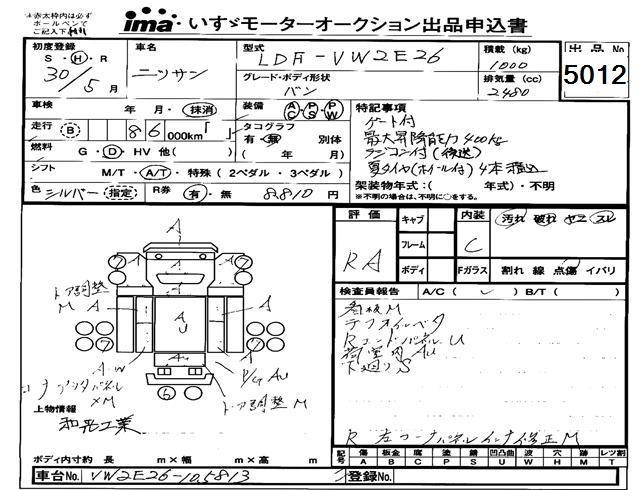 赤太枠内は必ず
ボールペンで
ご記入下さい
ima いすゞモーターオークション出品申込書
初度登録
S・H・R
30/5月
車名
ニッサン
型式
LDF-VW2E26
グレード・ボディ形状
バン
積載 (kg)
1000
排気量 (cc)
2480
出品No
5012
車検 年・月・抹消
装備 AC PS PW
走行 B 86 000km「 」
タコグラフ
有・無 別体
( 年 月)
燃料 G・D・HV 他( )
シフト M/T・A/T・特殊 ( 2ペダル ・ 3ペダル )
色 シルバー 指定 R券 有・無 8,810 円
特記事項
ゲート付
最大昇降能力400kg
ラジコン付(後送)
夏タイヤ(ホイール付)4本積込
架装物年式:( 年式)・不明
※不明の場合は、不明に○をする。
評価
RA
キャブ
フレーム
ボディ
内装 汚れ 破れ ヤニ スレ
C
Fガラス 割れ 線 点傷 イバリ
検査員報告 A/C ( ✓ ) B/T ( )
看板M
デフオイルベタ
RコードパネルU
荷室内AU
下廻りS
R 左コーナパネルインナ修正M
A
ドア調整
M A
A
A U
A
AW
P/G AU
コーナアウタパネル
×M
ドア調整 M
6
上物情報
和光工業
ボディ内寸約 長 m×幅 m×高 m
記号 傷 板金 腐 塗 錆 凹凸曲 波 穴 跡 レツ割
A B C P S U W H M T
車台No. VW2E26-105813
登録No.